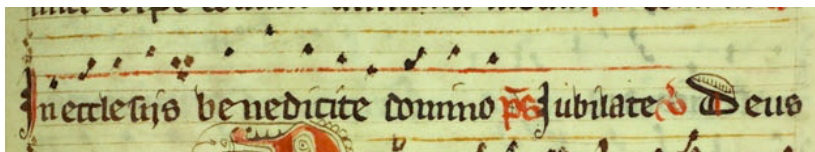 In ecclesijs benedicite domino ps Jubilate v Deus